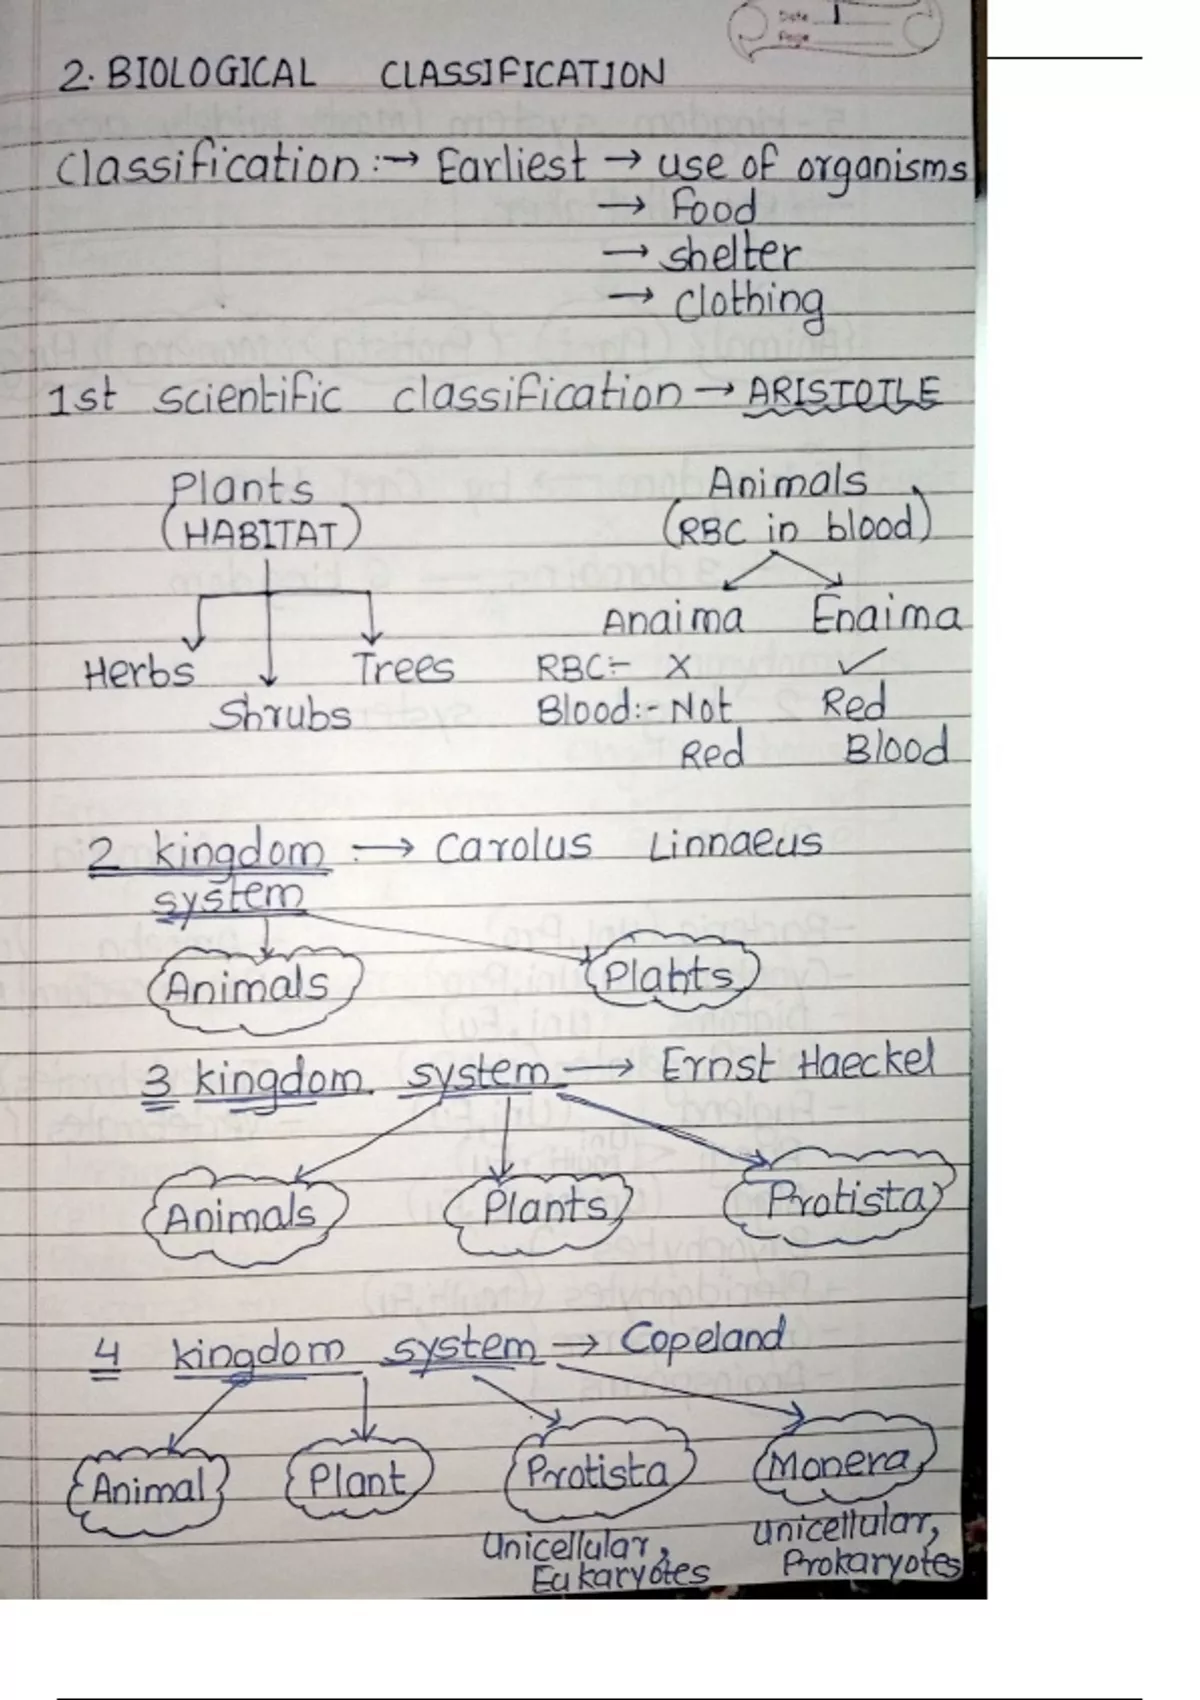 Date 1
Page
2. BIOLOGICAL CLASSIFICATION
Classification :→ Earliest → use of organisms
→ Food
→ shelter
→ clothing
1st scientific classification → ARISTOTLE
Plants Animals
(HABITAT) (RBC in blood)
Anaima Enaima
Herbs Trees RBC:- X ✓
Shrubs Blood:- Not Red
Red Blood
2 kingdom :→ Carolus Linnaeus
system
Animals Plants
3 kingdom system → Ernst Haeckel
Animals Plants Protista
4 kingdom system → Copeland
Animal Plant Protista Monera
Unicellular, Unicellular,
Eukaryotes Prokaryotes